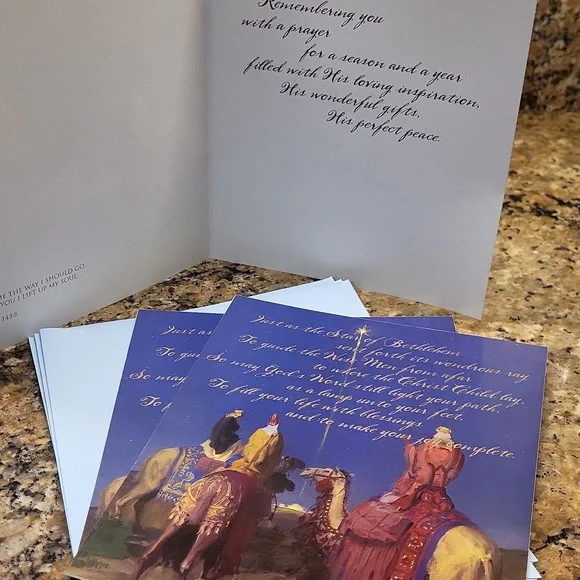 Remembering you
with a prayer
for a season and a year
filled with His loving inspiration,
His wonderful gifts,
His perfect peace.
ME THE WAY I SHOULD GO,
YOU I LIFT UP MY SOUL.
143:8
Just as
To gui
So may
To f
Just as the Star of Bethlehem
sent forth its wondrous ray
To guide the Wise Men from afar
to where the Christ Child lay,
So may God's Word still light your path,
as a lamp unto your feet,
To fill your life with blessings
and to make your joy complete.